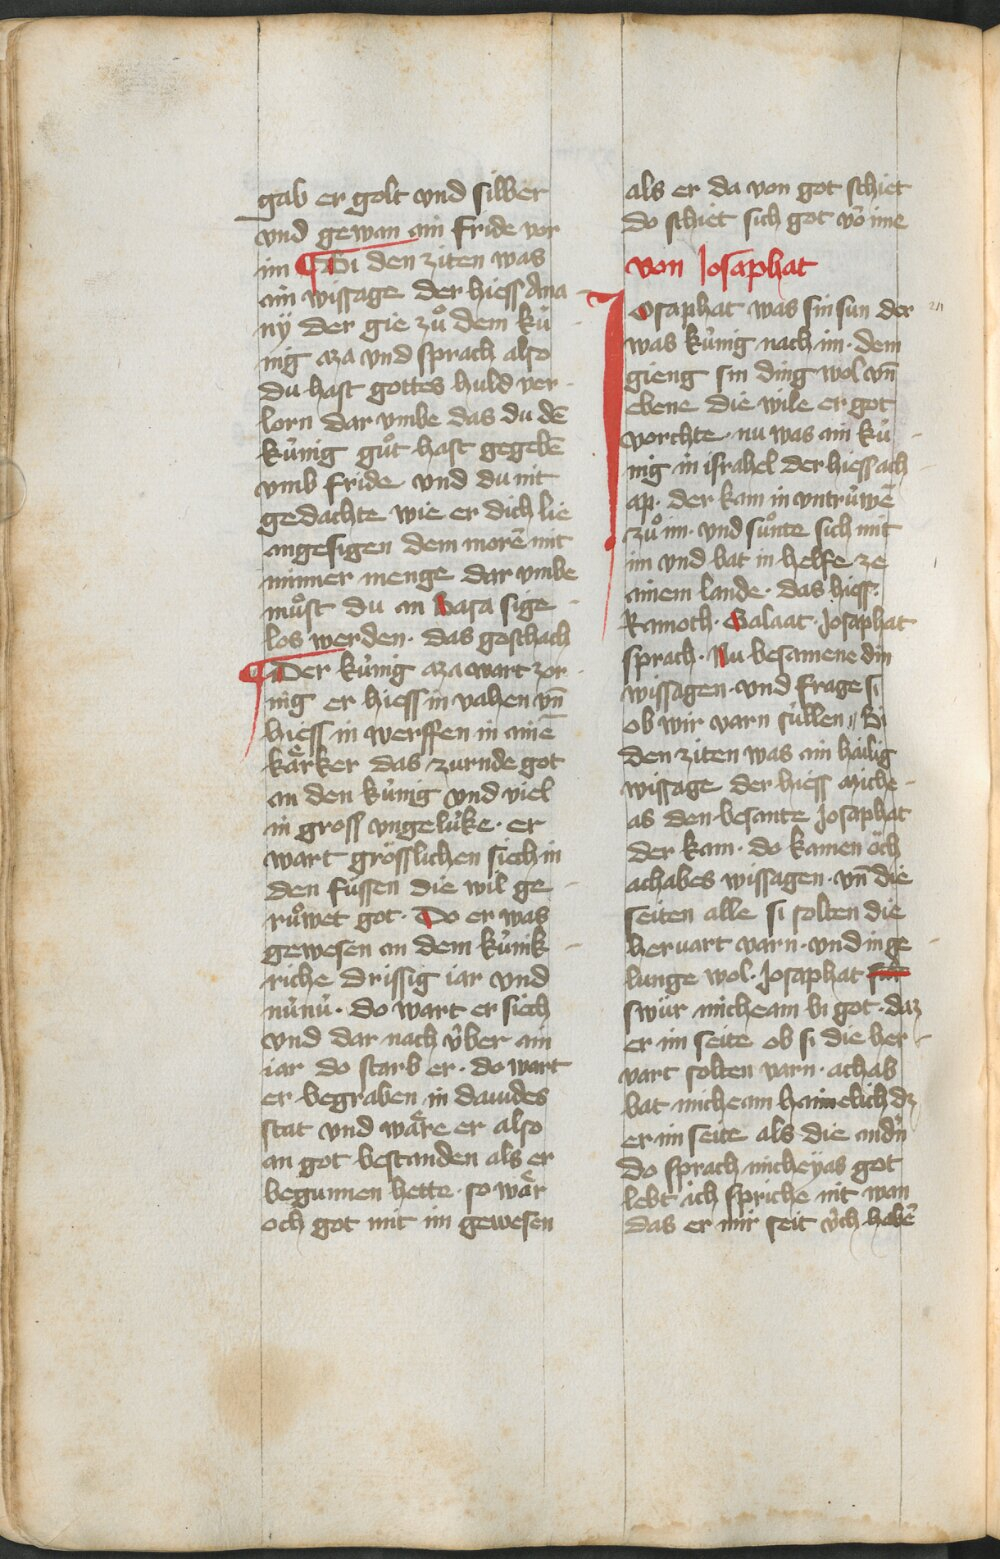 gab er golt vnd silber
vnd gewan ain fride vor
im ¶ Bi den ziten was
ain wissage der hiess Ana
ny der gie zuͦ dem kuͥ
nig aza vnd sprach also
du hast gottes huld ver
lorn dar vmbe das du dē
kuͥnig guͦt hast gegebē
vmb fride vnd du nit
gedachte wie er dich lie
angesigen dem morē mit
minner menge dar vmbe
muͦst du an basa sige
los werden · das geschach
¶ Der kuͥnig aza wart zor
nig er hiess in vahen vn̄
hiess in werffen in ainē
kaͤrker das zurnde got
an den kuͥnig vnd viel
in gross vngeluͥke · er
wart groͤsslichen siech in
den fuͤssen die wil ge
ruͦwet got · Do er was
gewesen an dem kuͥnik
riche drissig iar vnd
nuͥnuͥ · do wart er siech
vnd dar nach vͥber ain
iar do starb er · do wart
er begraben in dauides
stat vnd waͤre er also
an got bestanden als er
begunnen hette · so waͤr
och got mit im gewesen
als er da von got schiet
do schiet sich got vō ime
von Josaphat
Josaphat was sin sun der
was kuͥnig nach im · dem
gieng sin ding wol vn̄
ebene die wile er got
vorchte · nu was ain kuͥ
nig in israhel der hiess ach
ap · der kam in vntruͥwē
zuͦ im · vnd suͦnte sich mit
im vnd bat in helfe ze
ainem lande · das hiess ·
Ramoth · Galaat · Josaphat
sprach · Nu besamene din
wissagen · vnd frage si
ob wir varn suͥllen // Bi
den ziten was ain hailig
wissage der hiess miche
as den besante Josaphat
der kam · do kamen oͮch
achabes wissagen · vn̄ die
seiten alle si solten die
hervart varn · vnd in ge
lunge wol · Josaphat
swuͦr micheam bi got · daz
er im seite ob si die her
vart solten varn · achab
bat micheam haimelich dz
er im seite als die andn̄
do sprach micheyas got
lebt ich spriche nit wan
das er mir seit vͥch habē